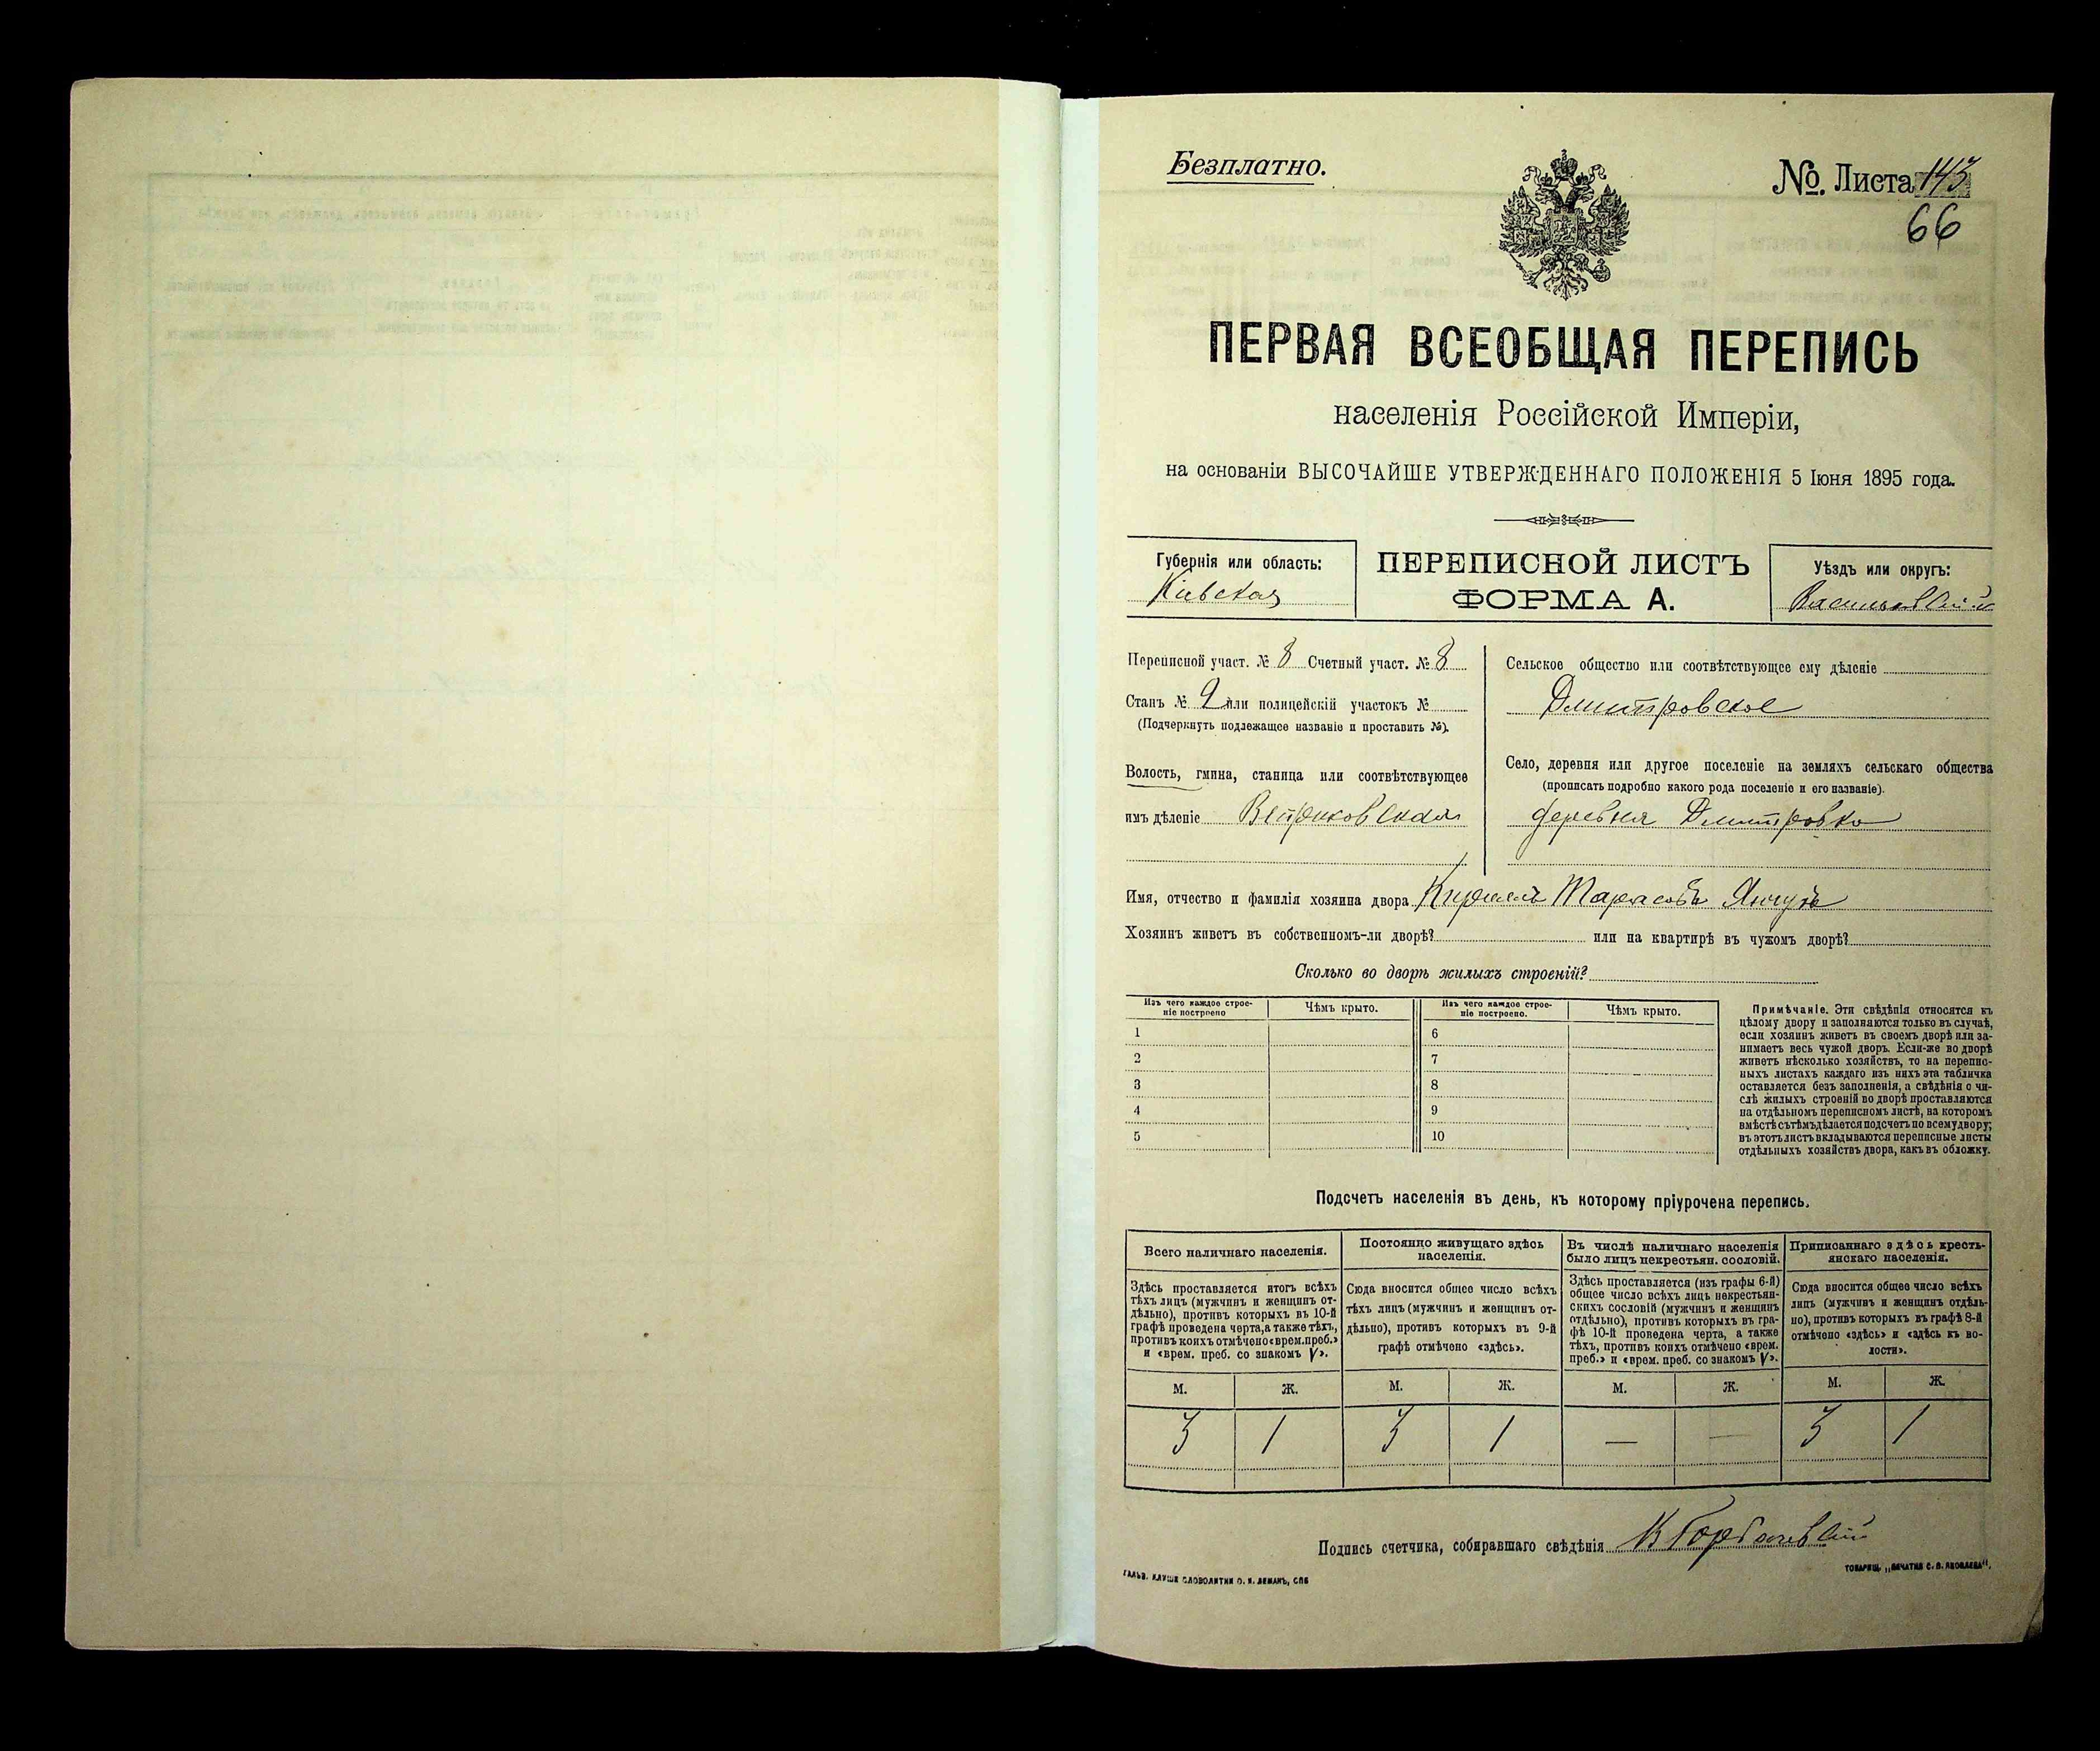 Безплатно.
№. Листа 143
66
ПЕРВАЯ ВСЕОБЩАЯ ПЕРЕПИСЬ
населенія Россійской Имперіи,
на основаніи ВЫСОЧАЙШЕ УТВЕРЖДЕННАГО ПОЛОЖЕНІЯ 5 Іюня 1895 года.
Губернія или область:
Кіевская
ПЕРЕПИСНОЙ ЛИСТЪ
ФОРМА А.
Уѣздъ или округъ:
Васильковскій
Переписной участ. № 8 Счетный участ. № 8
Станъ № 2 или полицейскій участокъ №
(Подчеркнуть подлежащее названіе и проставить №).
Волость, гмина, станица или соотвѣтствующее
имъ дѣленіе
Сельское общество или соотвѣтствующее ему дѣленіе
Дмитровское
Село, деревня или другое поселеніе на земляхъ сельскаго общества
(прописать подробно какого рода поселеніе и его названіе).
деревня Дмитровка
Имя, отчество и фамилія хозяина двора Кириллъ Тарасовъ
Хозяинъ живетъ въ собственномъ-ли дворѣ? или на квартирѣ въ чужомъ дворѣ?
Сколько во дворѣ жилыхъ строеній?
Изъ чего каждое строе-
ніе построено
Чѣмъ крыто.
Изъ чего каждое строе-
ніе построено.
Чѣмъ крыто.
1 6
2 7
3 8
4 9
5 10
Примѣчаніе. Эти свѣдѣнія относятся къ
цѣлому двору и заполняются только въ случаѣ,
если хозяинъ живетъ въ своемъ дворѣ или за-
нимаетъ весь чужой дворъ. Если-же во дворѣ
живетъ нѣсколько хозяйствъ, то на перепис-
ныхъ листахъ каждаго изъ нихъ эта табличка
оставляется безъ заполненія, а свѣдѣнія о чи-
слѣ жилыхъ строеній во дворѣ проставляются
на отдѣльномъ переписномъ листѣ, на которомъ
вмѣстѣ съ тѣмъ дѣлается подсчетъ по всему двору;
въ этотъ листъ вкладываются переписные листы
отдѣльныхъ хозяйствъ двора, какъ въ обложку.
Подсчетъ населенія въ день, къ которому пріурочена перепись.
Всего наличнаго населенія.
Здѣсь проставляется итогъ всѣхъ
тѣхъ лицъ (мужчинъ и женщинъ от-
дѣльно), противъ которыхъ въ 10-й
графѣ проведена черта, а также тѣхъ,
противъ коихъ отмѣчено «врем. преб.»
и «врем. преб. со знакомъ V».
Постоянно живущаго здѣсь
населенія.
Сюда вносится общее число всѣхъ
тѣхъ лицъ (мужчинъ и женщинъ от-
дѣльно), противъ которыхъ въ 9-й
графѣ отмѣчено «здѣсь».
Въ числѣ наличнаго населенія
было лицъ некрестьян. сословій.
Здѣсь проставляется (изъ графы 6-й)
общее число всѣхъ лицъ некрестьян-
скихъ сословій (мужчинъ и женщинъ
отдѣльно), противъ которыхъ въ гра-
фѣ 10-й проведена черта, а также
тѣхъ, противъ коихъ отмѣчено «врем.
преб.» и «врем. преб. со знакомъ V».
Приписаннаго здѣсь кресть-
янскаго населенія.
Сюда вносится общее число всѣхъ
лицъ (мужчинъ и женщинъ отдѣль-
но), противъ которыхъ въ графѣ 8-й
отмѣчено «здѣсь» и «здѣсь въ во-
лости».
М. Ж. М. Ж. М. Ж. М. Ж.
3 1 3 1 — — 3 1
Подпись счетчика, собиравшаго свѣдѣнія В Горбачевскій
ГАЛЬВ. КЛИШЕ СЛОВОЛИТНИ О. И. ЛЕМАНЪ, СПБ
ТОВАРИЩ. „ПЕЧАТНЯ С. П. ЯКОВЛЕВА".